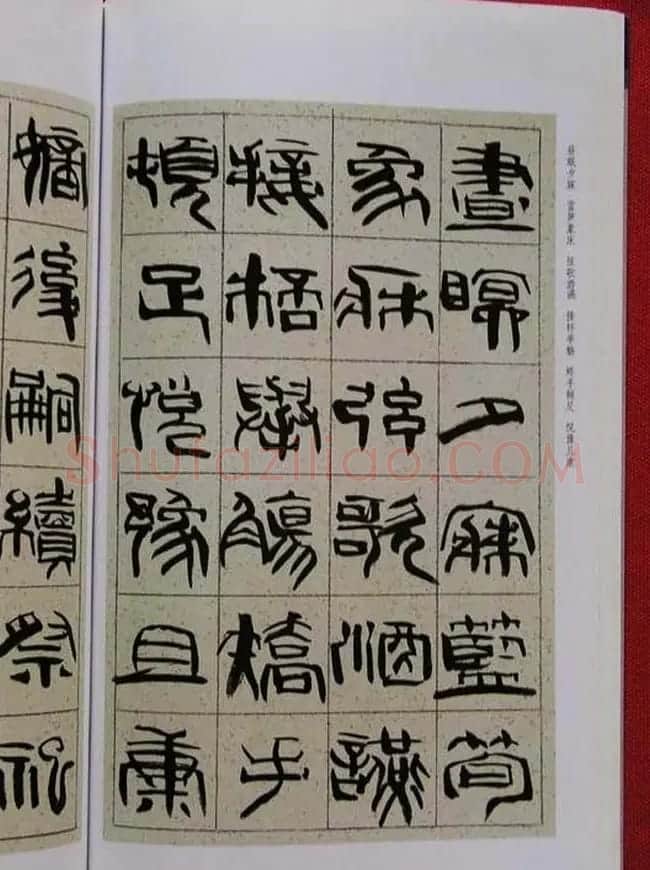 昼眠夕寐 蓝笋象床 弦歌酒讌 接杯举觞 矫手顿足 悦豫且康
晝眠夕寐藍筍
象床弦歌酒讌
接桮舉觴矯手
頓足悅豫且康
嫡後嗣續祭祀
Shufaziliao.COM